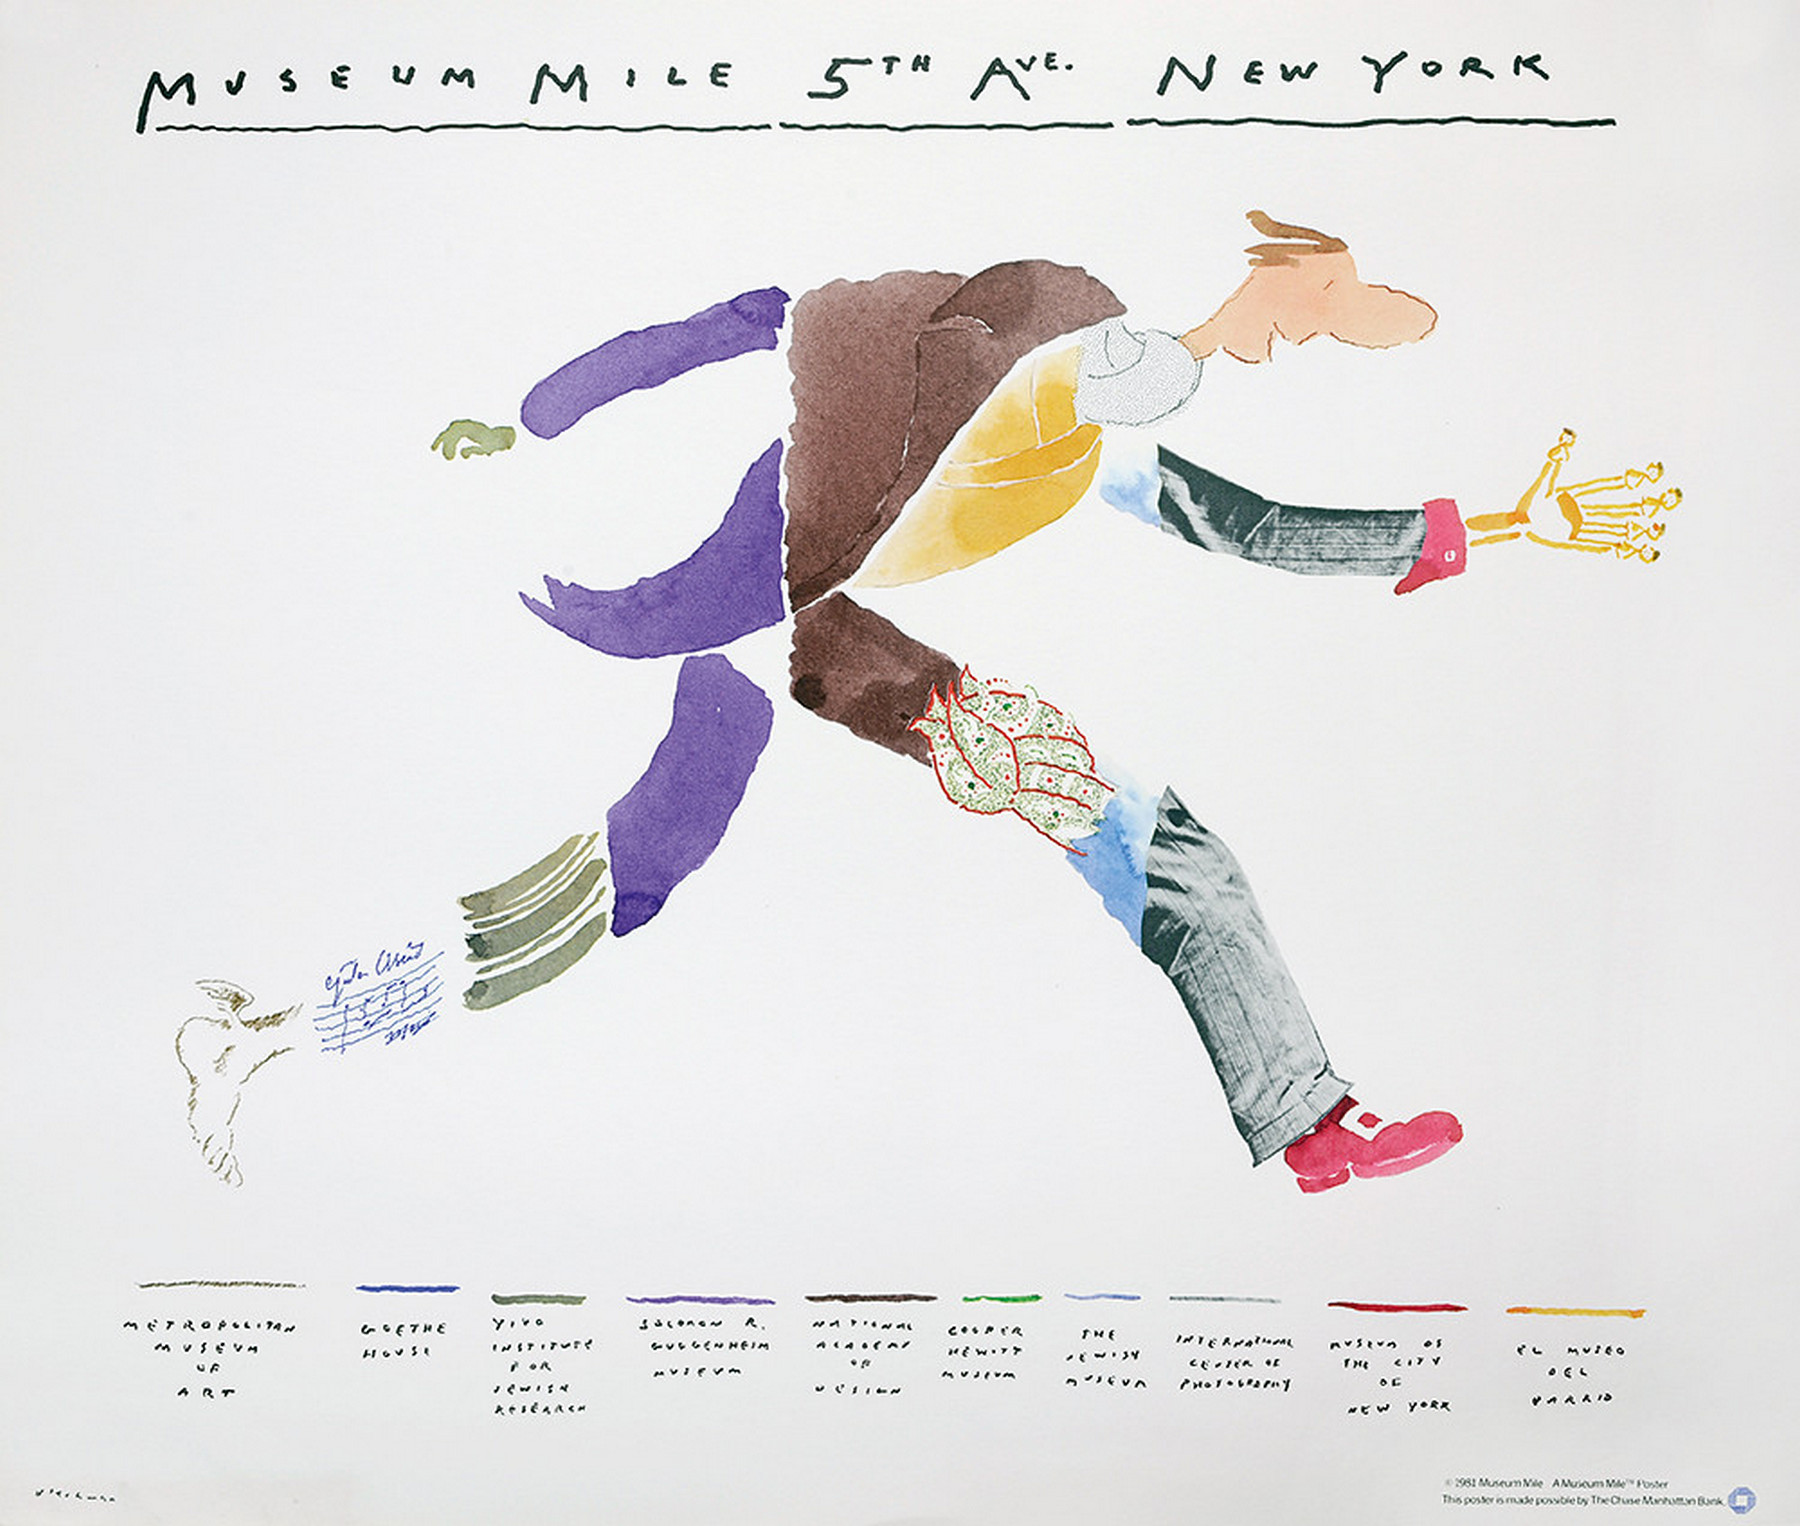 MUSEUM MILE 5TH AVE. NEW YORK
METROPOLITAN
MUSEUM
OF
ART
GOETHE
HOUSE
YIVO
INSTITUTE
FOR
JEWISH
RESEARCH
SOLOMON R.
GUGGENHEIM
MUSEUM
NATIONAL
ACADEMY
OF
DESIGN
COOPER
HEWITT
MUSEUM
THE
JEWISH
MUSEUM
INTERNATIONAL
CENTER OF
PHOTOGRAPHY
MUSEUM OF
THE CITY
OF
NEW YORK
EL MUSEO
DEL
BARRIO
© 1981 Museum Mile A Museum Mile™ Poster
This poster is made possible by The Chase Manhattan Bank.